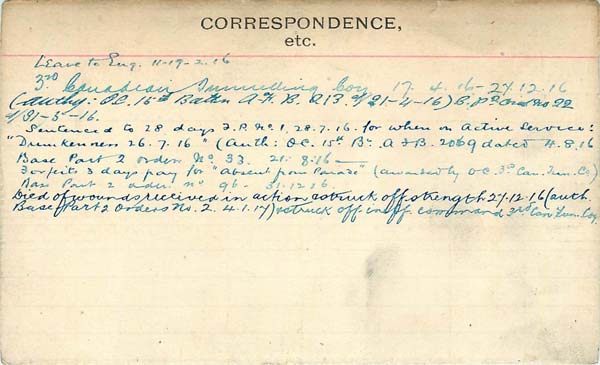 CORRESPONDENCE,
etc.
Leave to Eng. 11-19-2.16
3rd Canadian Tunnelling Coy 17.4.16 - 27.12.16
(Authy: O.C. 15th Battn A.F.B. 213 d/21-4-16) B.P2 No 22
d/31-5-16.
"Sentenced to 28 days F.P. No. 1, 28.7.16. for when on Active Service:
"Drunkenness 26.7.16" (Auth: O.C. 15th Bn. A.F.B. 2069 dated 4.8.16
Base Part 2 orders No. 33. 21.8.16
Forfeits 3 days pay for "Absent from Parade" (awarded by O.C. 3rd Can. Tun. Co.)
Base Part 2 order No 96. 31.12.16.
Died of wounds received in action & struck off strength 27.12.16 (auth.
Base Part 2 Orders No. 2. 4.1.17) & struck off command 3rd Can Tun. Co.